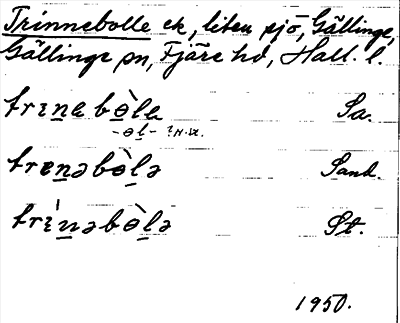 Trinnebolle ek, liten sjö, Gällinge,
Gällinge sn, Fjäre hd, Hall. l.
trɪnebɵ̀le Sa.
trenəbɵ̀lə Sand.
trɪ̀nəbɵ̀lə St.
1950.